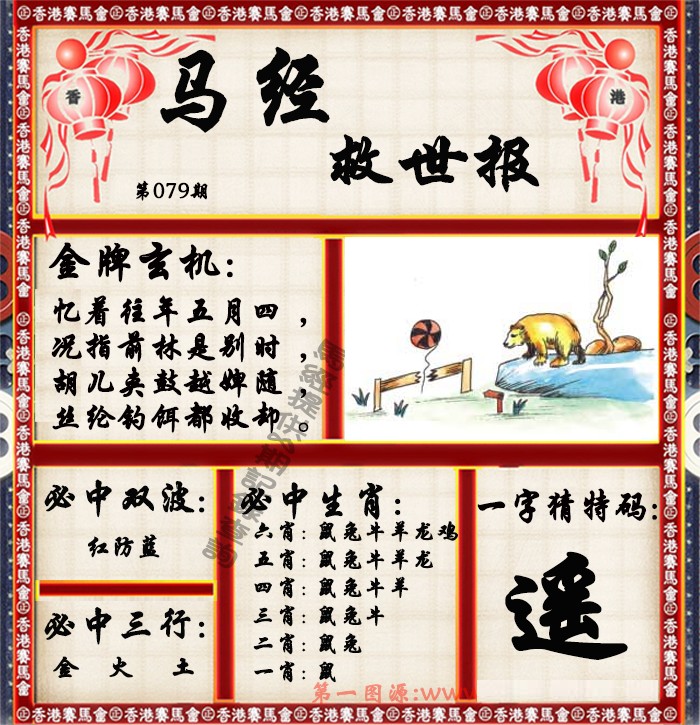 香港賽馬會
香
港
马经
救世报
第079期
金牌玄机：
忆着往年五月四，
况指前林是别时，
胡儿夹鼓越婢随，
丝纶钓饵都收却。
必中双波：
红防蓝
必中三行：
金 火 土
必中生肖：
六肖：鼠兔牛羊龙鸡
五肖：鼠兔牛羊龙
四肖：鼠兔牛羊
三肖：鼠兔牛
二肖：鼠兔
一肖：鼠
一字猜特码：
遥
第一图源:www